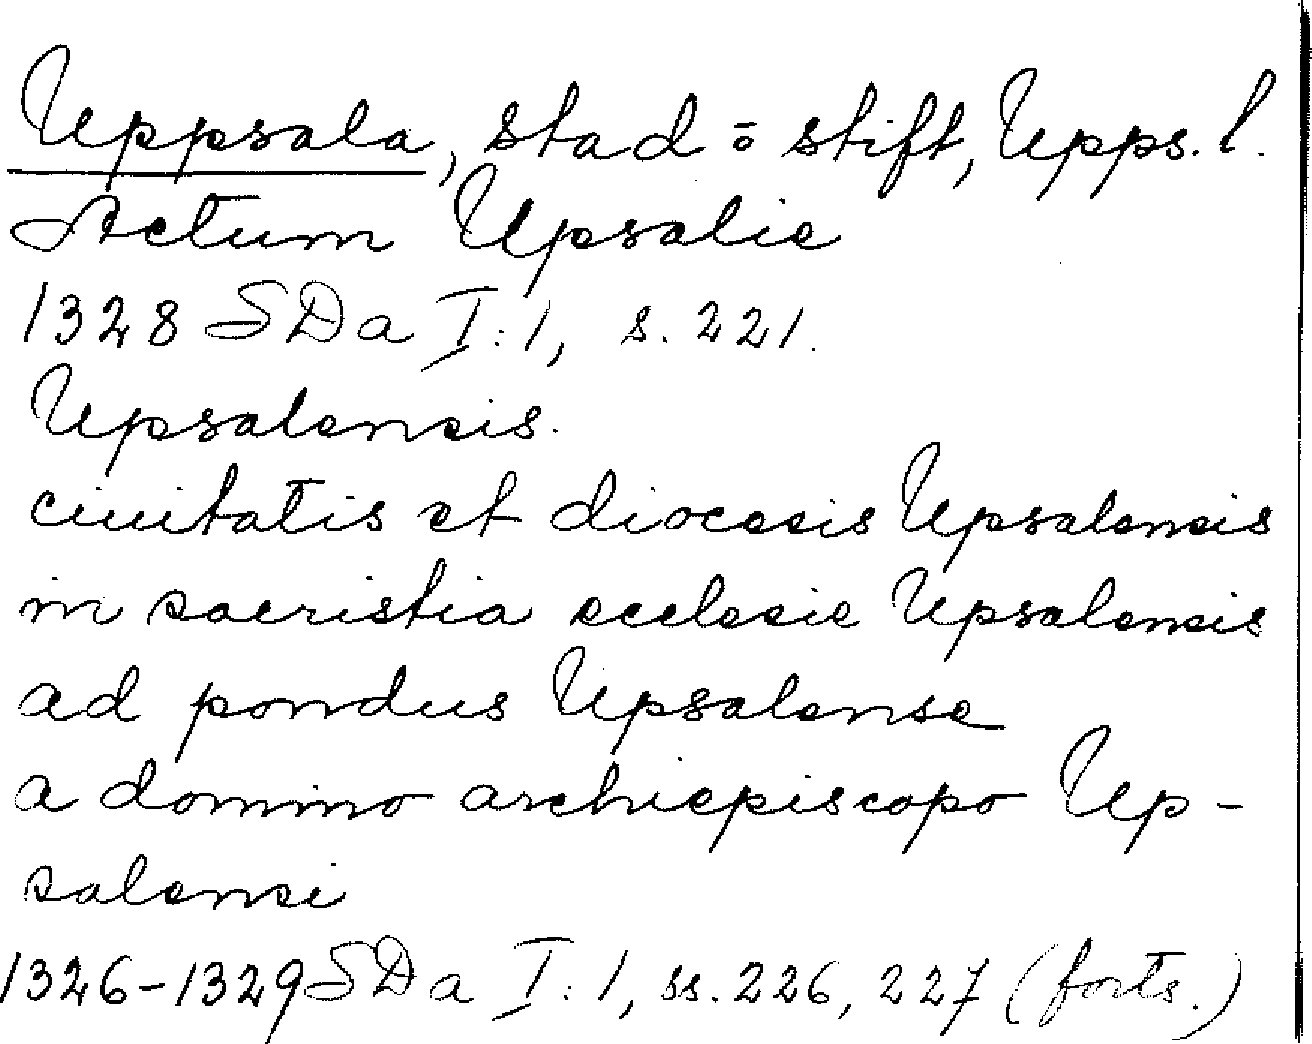 Uppsala, stad o stift, Upps. l.
Actum Upsalie
1328 SDa I:1, s. 221.
Upsalensis.
ciuitatis et diocesis Upsalensis
in sacristia ecclesie Upsalensis
ad pondus Upsalense
a domino archiepiscopo Up-
salensi
1326-1329 SDa I:1, ss. 226, 227 (forts.)